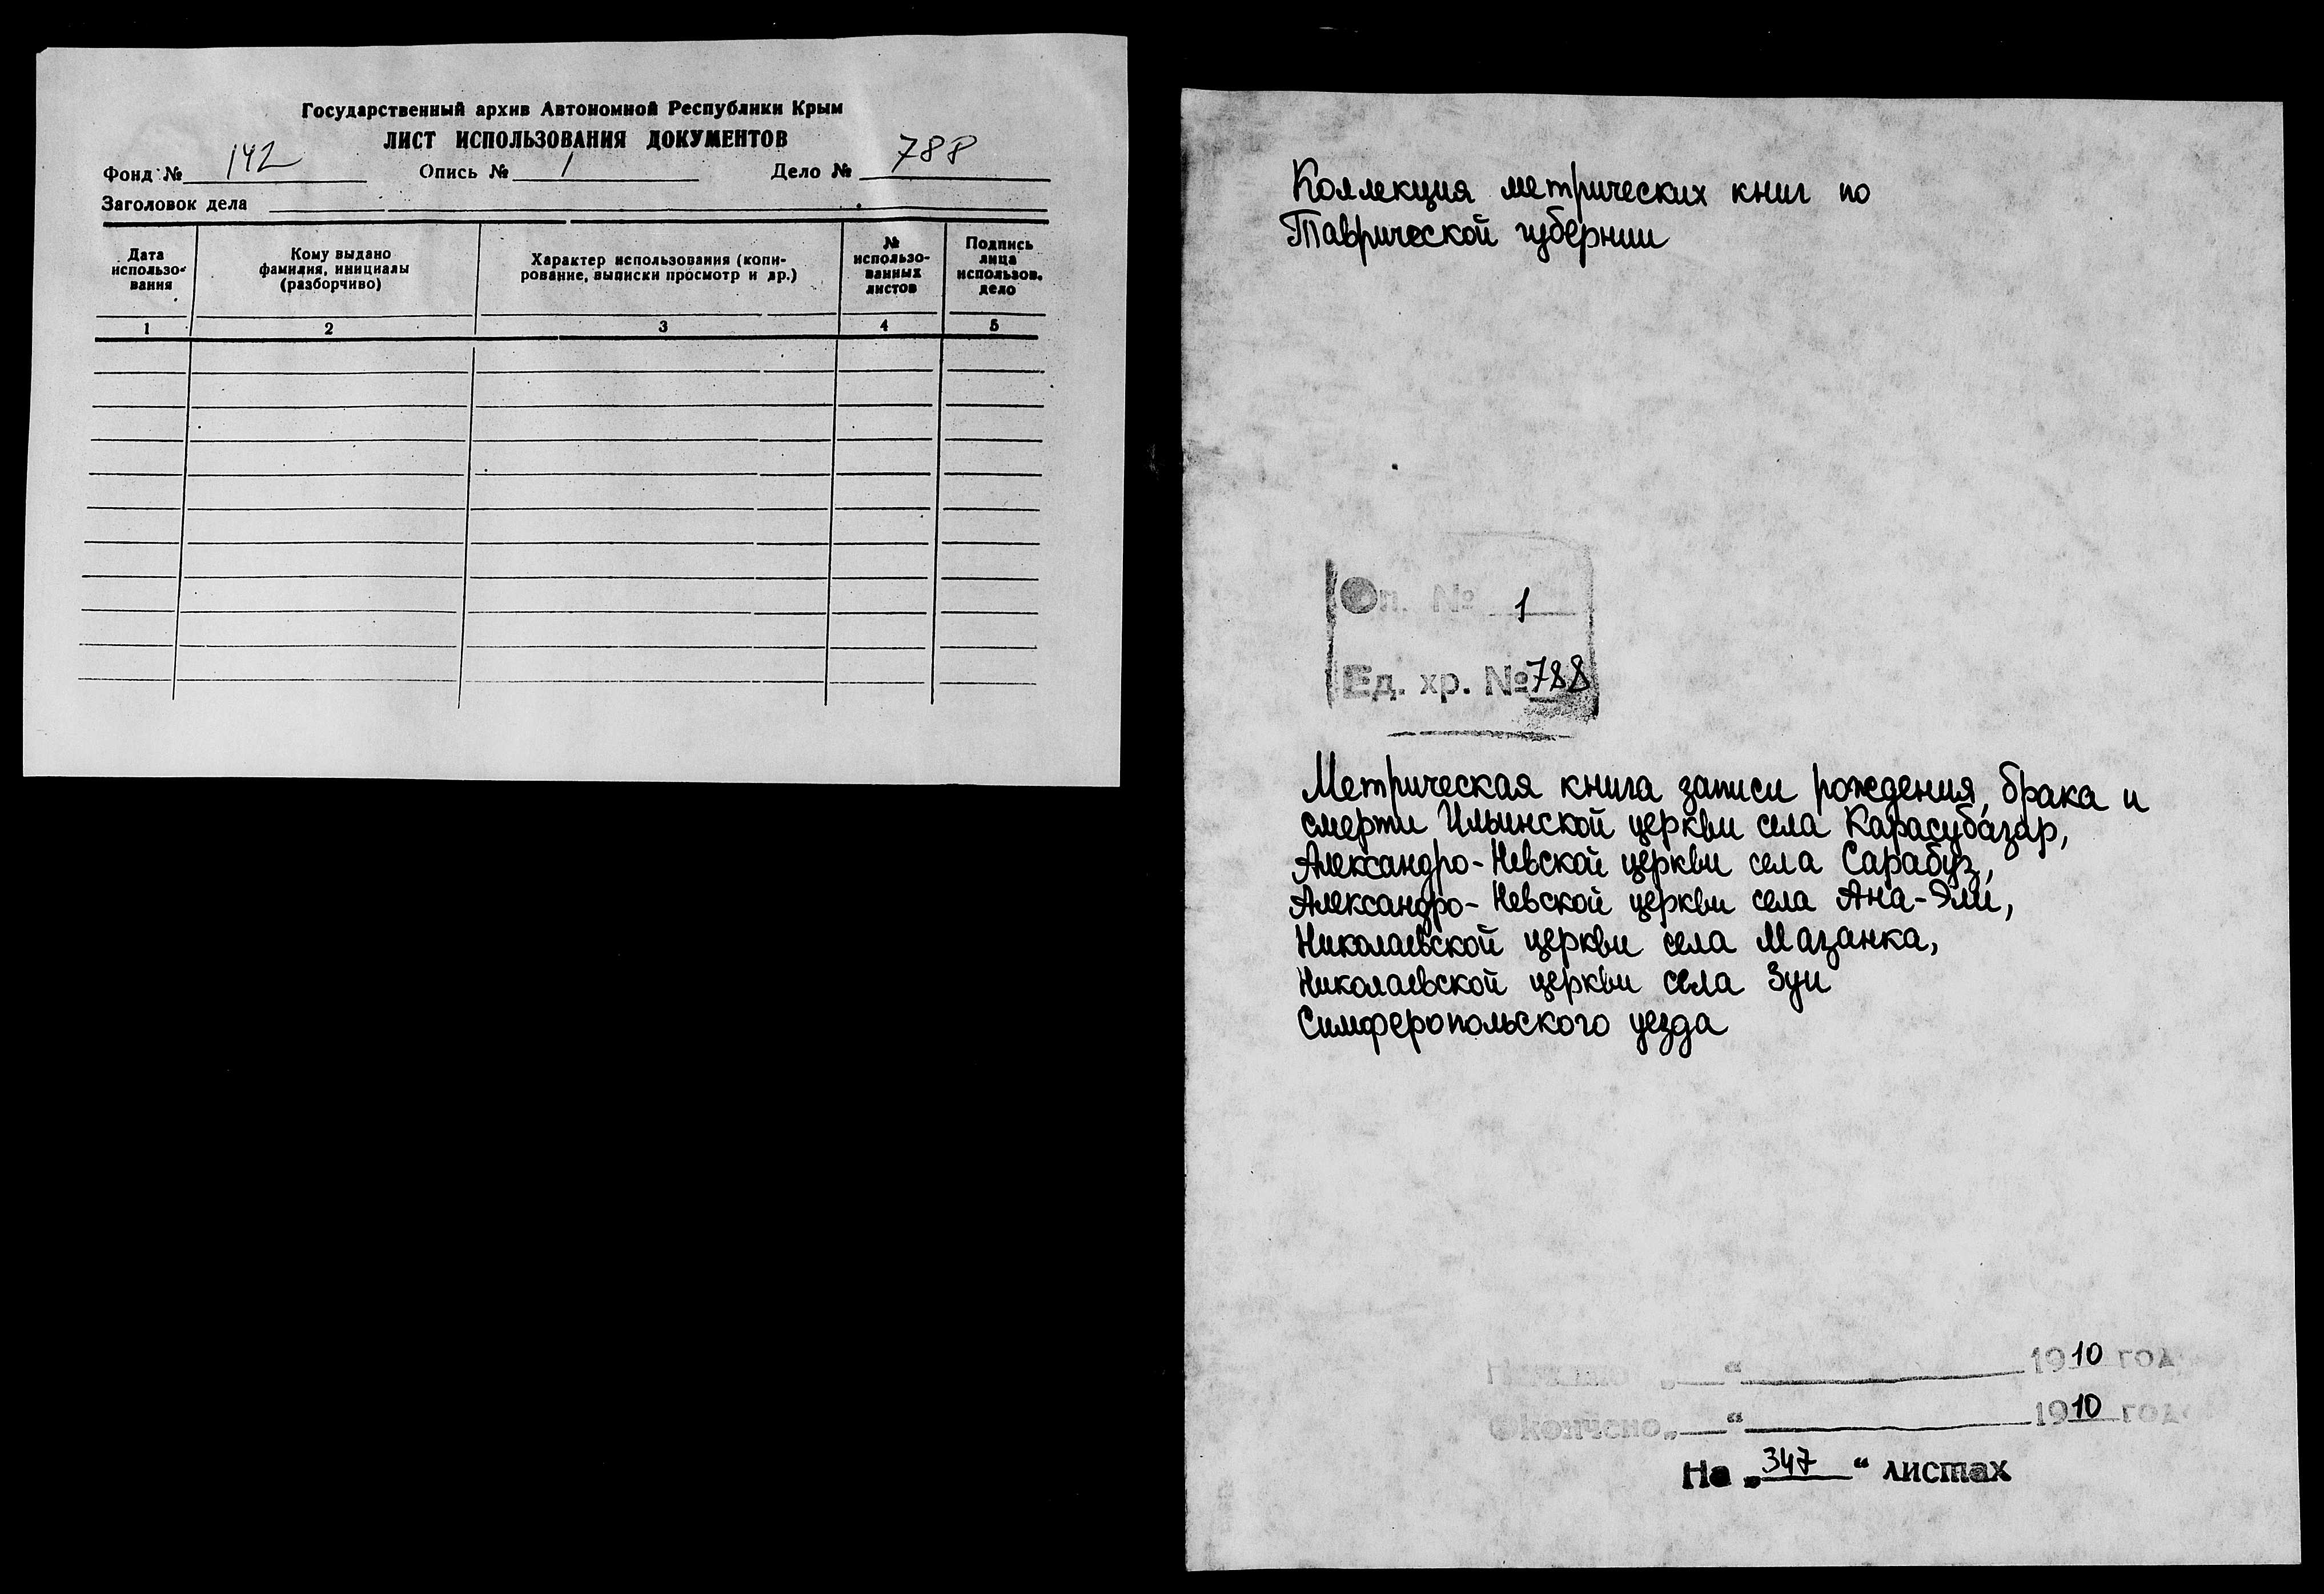 Государственный архив Автономной Республики Крым
ЛИСТ ИСПОЛЬЗОВАНИЯ ДОКУМЕНТОВ
Фонд № 142 Опись № 1 Дело № 788
Заголовок дела
Дата использо-вания
Кому выдано фамилия, инициалы (разборчиво)
Характер использования (копи-рование, выписки просмотр и др.)
№ использо-ванных листов
Подпись лица использов. дело
1 2 3 4 5
Коллекция метрических книг по
Таврической губернии
Оп. № 1
Ед. хр. № 788
Метрическая книга записи рождения, брака и
смерти Ильинской церкви села Карасубазар,
Александро-Невской церкви села Сарабуз,
Александро-Невской церкви села Ана-Эли,
Николаевской церкви села Мазанка,
Николаевской церкви села Зуи
Симферопольского уезда
Начато „ “ 1910 год
Окончено „ “ 1910 год
На „347“ листах